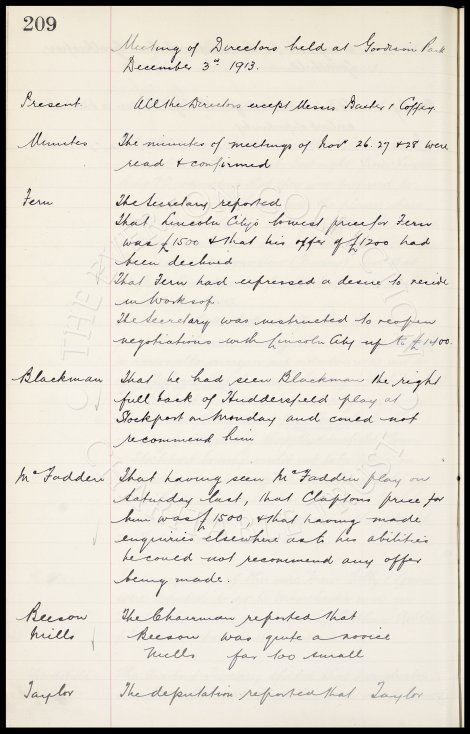 209
Meeting of Directors held at Goodison Park
December 3rd 1913.
Present All the Directors except Messrs Baxter & Coffey.
Minutes The minutes of meetings of Nov 26. 27 & 28 were
read & confirmed
Fern The Secretary reported
That Lincoln City's lowest price for Fern
was £1500 & that his offer of £1200 had
been declined
That Fern had expressed a desire to reside
in Worksop.
The Secretary was instructed to reopen
negotiations with Lincoln City up to £1400.
Blackman That he had seen Blackman the right
full back of Huddersfield play at
Stockport on Monday and could not
recommend him
McFadden That having seen McFadden play on
Saturday last, that Claptons price for
him was £1500, & that having made
enquiries elsewhere as to his abilities
he could not recommend any offer
being made.
Beeson The Chairman reported that
Mills Beeson was quite a novice
Mills far too small
Taylor The deputation reported that Taylor